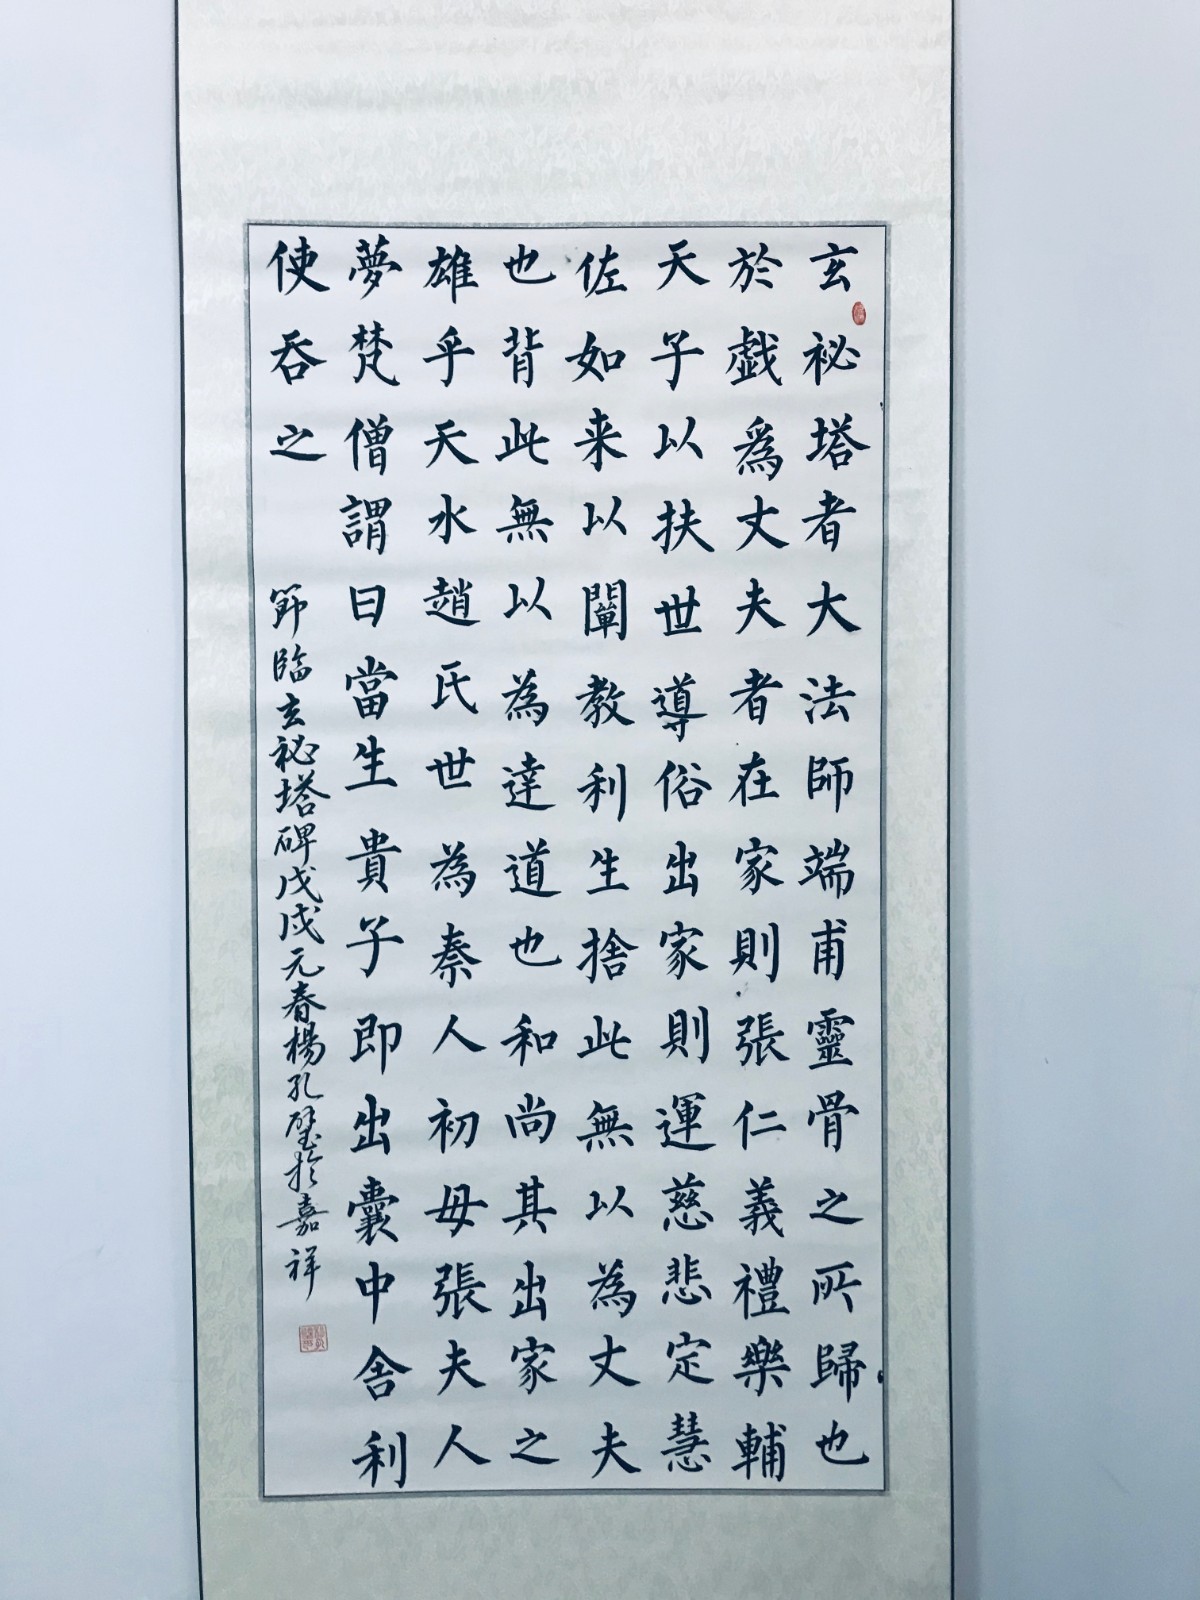 玄祕塔者大法師端甫靈骨之所歸也
於戲爲丈夫者在家則張仁義禮樂輔
天子以扶世導俗出家則運慈悲定慧
佐如来以闡教利生捨此無以為丈夫
也背此無以為達道也和尚其出家之
雄乎天水趙氏世為秦人初母張夫人
夢梵僧謂曰當生貴子即出囊中舍利
使吞之
節臨玄祕塔碑戊戌元春楊孔壁於嘉祥